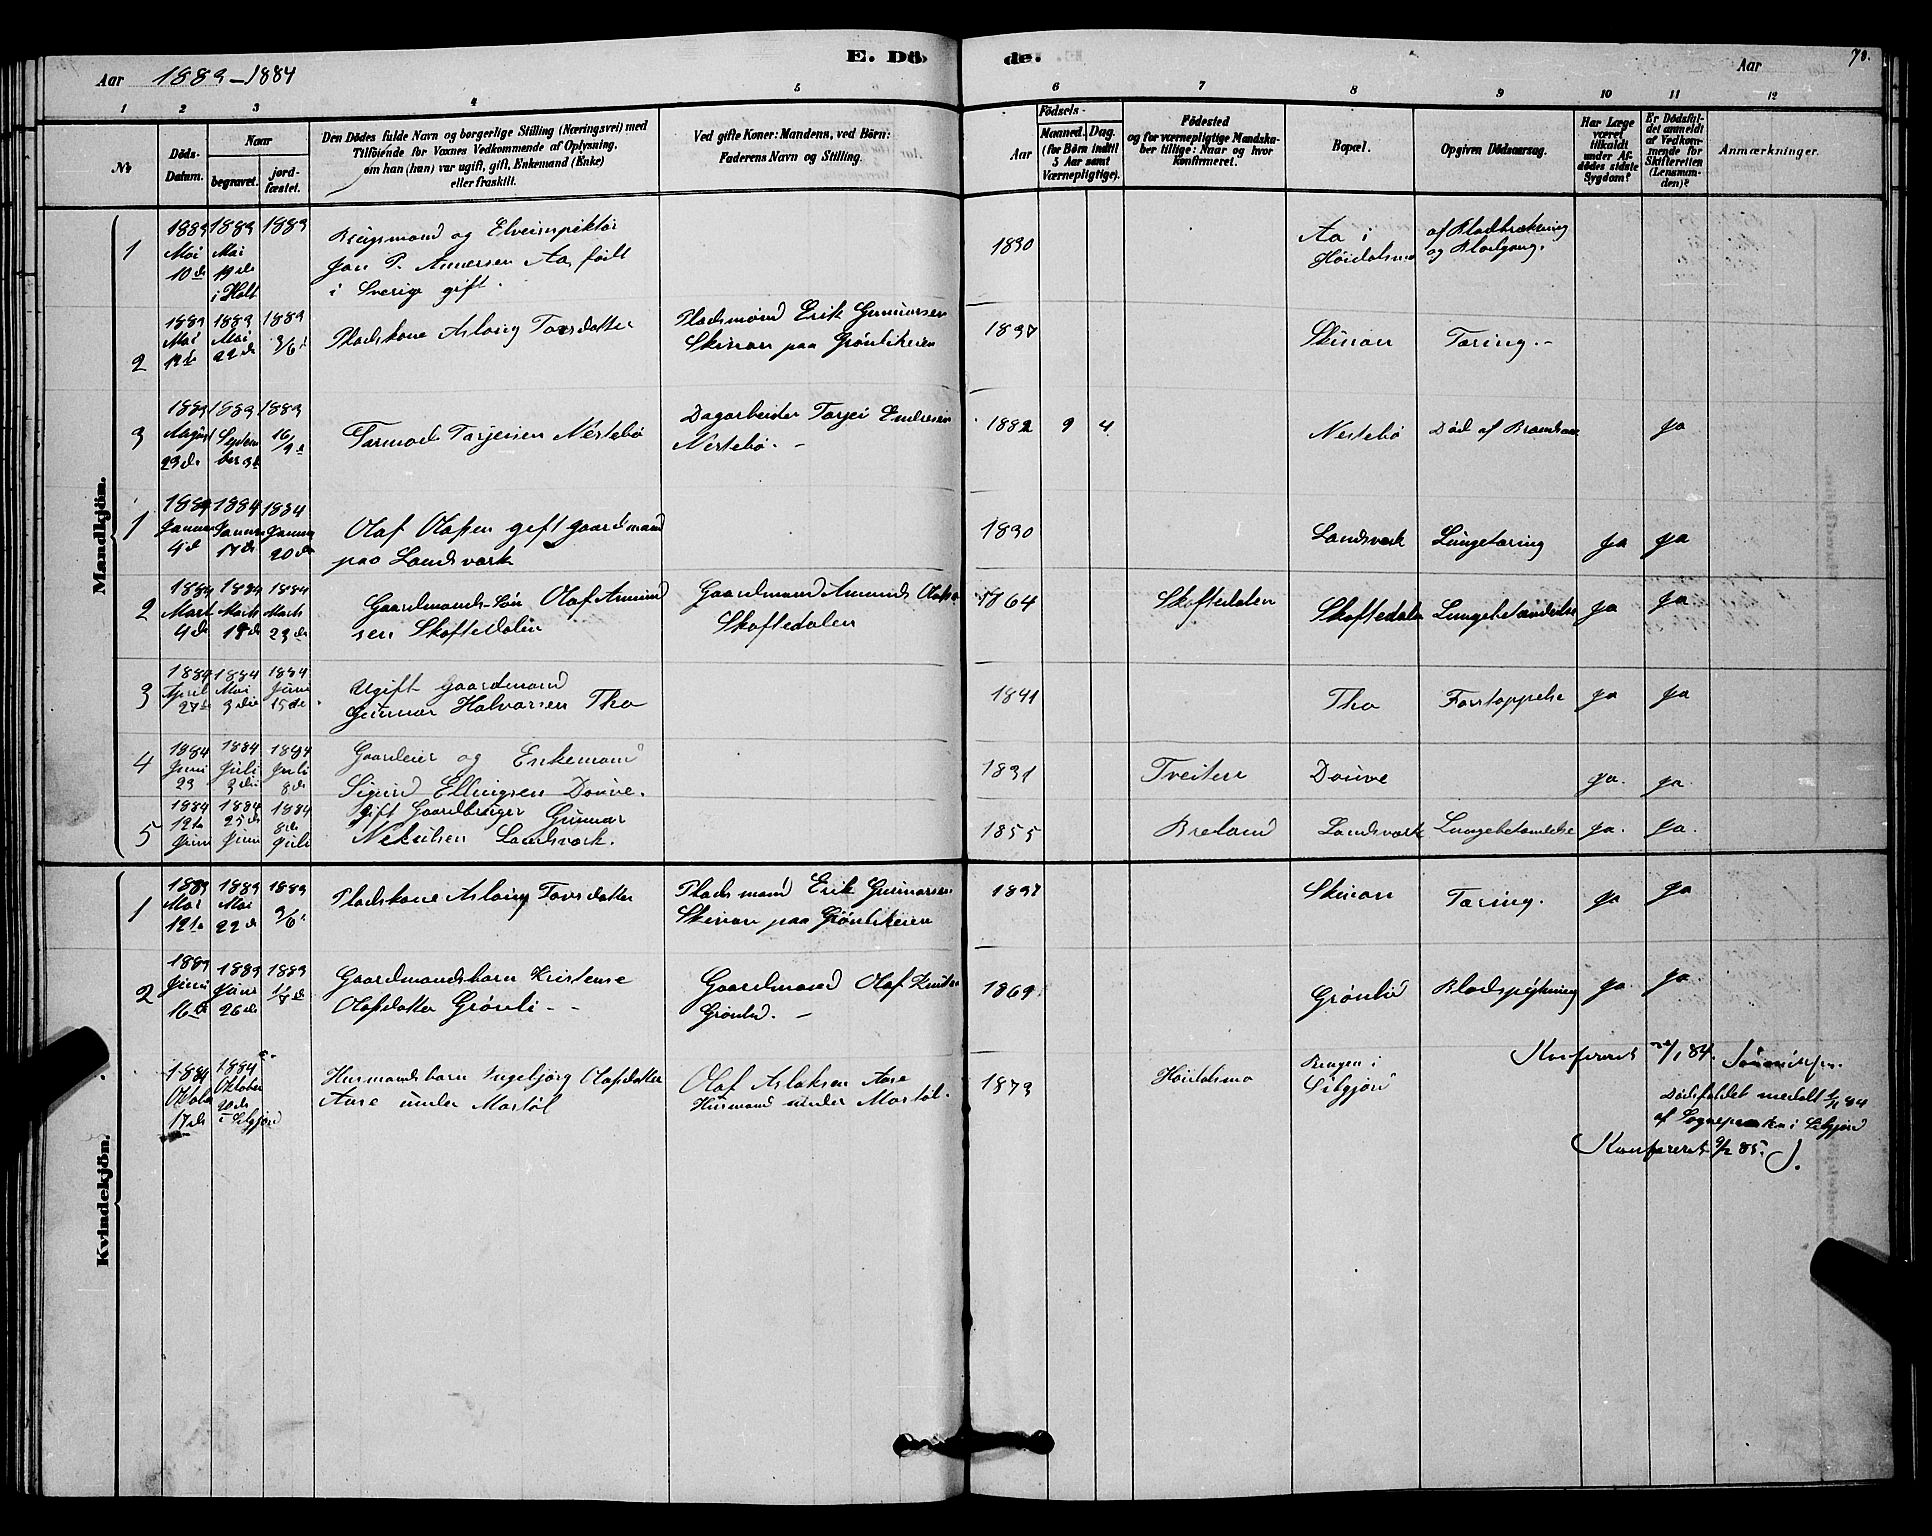 E. Döde.
70.
Aar 1883-1884
Aar
1 2 3 4 5 6 7 8 9 10 11 12
No
Döds-Datum.
Naar
begravet.
jord-fæstet.
Den Dödes fulde Navn og borgerlige Stilling (Næringsvei) med
Tilföiende for Voxnes Vedkommende af Oplysning,
om han (hun) var ugift, gift, Enkemand (Enke)
eller fraskilt.
Ved gifte Koner: Mandens, ved Börn:
Faderens Navn og Stilling.
Födsels-
Aar
Maaned. Dag.
(for Börn indtil
5 Aar samt
Værnepligtige).
Födested
og for værnepligtige Mandska-
ber tillige: Naar og hvor
Konfirmeret.
Bopæl.
Opgiven Dödsaarsag.
Har Læge
været
tilkaldt
under Af-
dödes sidste
Sygdom?
Er Dödsfal-
det anmeldt
af Vedkom-
mende for
Skifteretten
(Lensman-
den)?
Anmærkninger.
Mandkjön.
1
1883 Mai 10de
1883 Mai 19de i Holt
1883
Brugsmand og Elveinspektør
Jon P. Annersen Aa født
i Sverige gift.
1830
Aa i
Høidalsmo
af Blodbrækning
og Blodgang.
2
1883 Mai 12te
1883 Mai 22de
1883 3/6
Pladskone Aslaug Torsdatter
Pladsmand Erik Gunnarsen
Skinan paa Grønlikeien
1837
Skinan
Tæring.-
3
1883 August 23de
1883 September 3de
1883 16/9
Tarmod Tarjeisen Nestebø
Dagarbeider Tarjei Endresen
Nestebø. -
1882 9 4
Nestebø
Død af
ja
1
1884 Januar 4de
1884 Januar 17de
1884 Januar 20de
Olaf Olafsen gift gaardmand
paa Landsverk
1830
Landsverk
Lungetæring
ja
ja
2
1884 Marts 4de
1884 Marts 18de
1884 Marts 23de
Gaardmands-Søn Olaf Anund
sen Skoftedalen
Gaardmand Anund Olafsen
Skoftedalen
1864
Skoftedalen
Skoftedalen
Lungebetændelse
ja
ja
3
1884 April 27de
1884 Mai 3die
1884 Juni 15de
Ugift Gaardmand
Gunnar Halvorsen Tho
1841
Tho
Forstoppelse
ja
ja
4
1884 Juni 23
1884 Juli 3die
1884 Juli 8de
Gaardeier og Enkemand
Sigurd Ellingsen Douve.
1831
Tveiten
Douve
ja.
ja.
5
1884 12te Juni
1884 25de Juni
1884 8de Juli
gift Gaardbruger Gunnar
Nekulsen Landsverk.
1855
Breland
Landsverk
Lungebetændelse
ja.
ja.
Kvindekjön.
1
1883 Mai 12te
1883 Mai 22de
1883 3/6
Pladskone Aslaug Torsdatter
Pladsmand Erik Gunnarsen
Skinan paa Grønlikeien
1837
Skinan
Tæring.
ja
ja
2
1883 Juni 16de
1883 Juni 26de
1883
Gaardmandsbarn Kristense
Olafsdatter Grønli - -
Gaardmand Olaf Knutsen
Grønlid. -
1869
Grønlid
Blodspytning
ja.
ja.
1884 Oktober 17de
1884 Oktober 20de i Silgjord
Husmandsbarn Ingebjørg Olafsdatter
Aase under Mostøl
Olaf Aslaksen Aase
Husmand under Mostøl.
1873
Høidalsmo
i
Silgjord
Konfereret /1 84.
Dødsfaldet meldt 84
af Sognepresten i Silgjord
Konfereret 9/2 85. J.